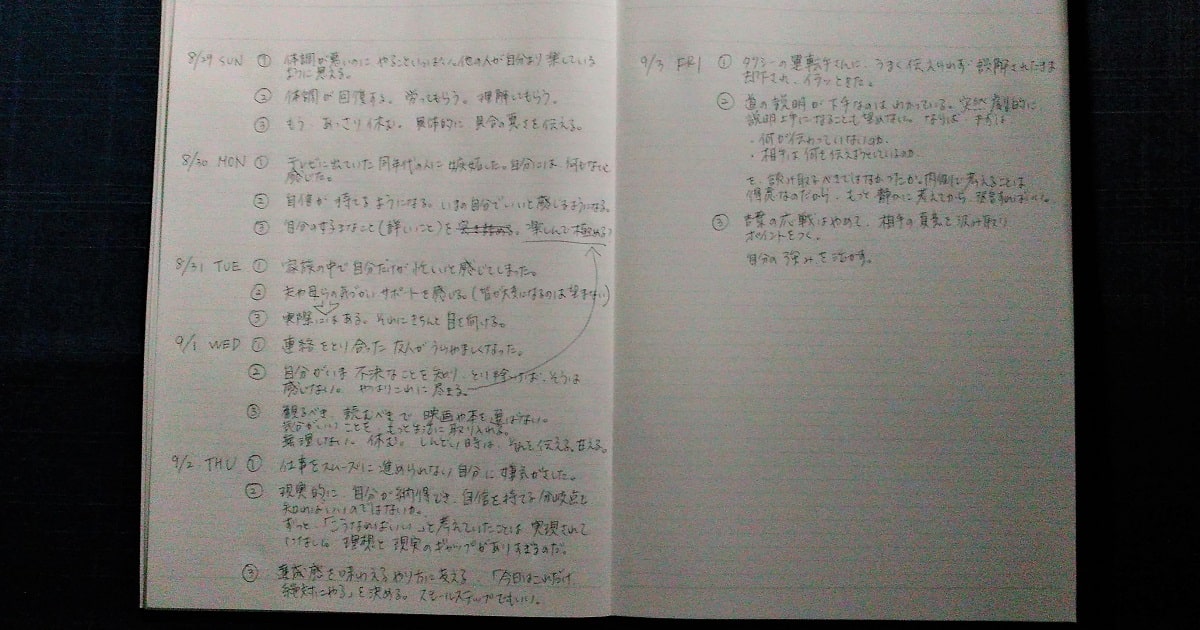 8/29 SUN ① 体調が悪いのに やることいっぱい。他の人が自分より 楽している
ように思える。
② 体調が回復する。労ってもらう。理解してもらう。
③ もう、あっさり休む。具体的に、具合の悪さを伝える。
8/30 MON ① テレビに出ていた 同年代の人に 嫉妬した。自分には 何もないと
感じた。
② 自信が 持てるようになる。いまの自分でいいと感じるようになる。
③ 自分のすきなこと(詳しいこと)を 楽しんで極める
8/31 TUE ① 家族の中で自分だけが 忙しいと感じてしまった。
② 夫や母らの気づかい サポートを感じる。(皆が大変になるのは望まない)
③ 実際にはある。それにきちんと 目を向ける。
9/1 WED ① 連絡をとり合った 友人がうらやましくなった。
② 自分がいま 不快なことを知り、とり除けば、そうは
感じない。やっぱりこれに尽きる。
③ 観るべき、読むべきで、映画や本を選ばない。
気分がいいことを、もっと生活に取り入れる。
無理しない。休む。しんどい時は、ちゃんと伝える。甘える。
9/2 THU ① 仕事をスムーズに 進められない 自分に 嫌気がさした。
② 現実的に、自分が納得でき、自信を持てる 分岐点を
知ればいいのではないか。
ずっと、「こうなればいい」と考えていたことは 実現されて
いない。理想と 現実の ギャップがありすぎるのだ。
③ 達成感を味わえる やり方に変える。「今日はこれだけ
絶対にやる」を決める。スモールステップでもいい。
9/3 FRI ① タクシーの運転手さんに、うまく伝えられず 誤解されたまま
却下され、イラッときた。
② 道の説明が下手なのは わかっている。突然 劇的に
説明上手になることも 望めない。ならば
・何が伝わっていないのか
・相手は何を伝えようとしているのか
を、読み取るべきではなかったか。内側で考えることは
得意なのだから、もっと静かに考えてから
③ 言葉の応戦はやめて、相手の真意を汲み取り
ポイントをつく。
自分の 強みを活かす。